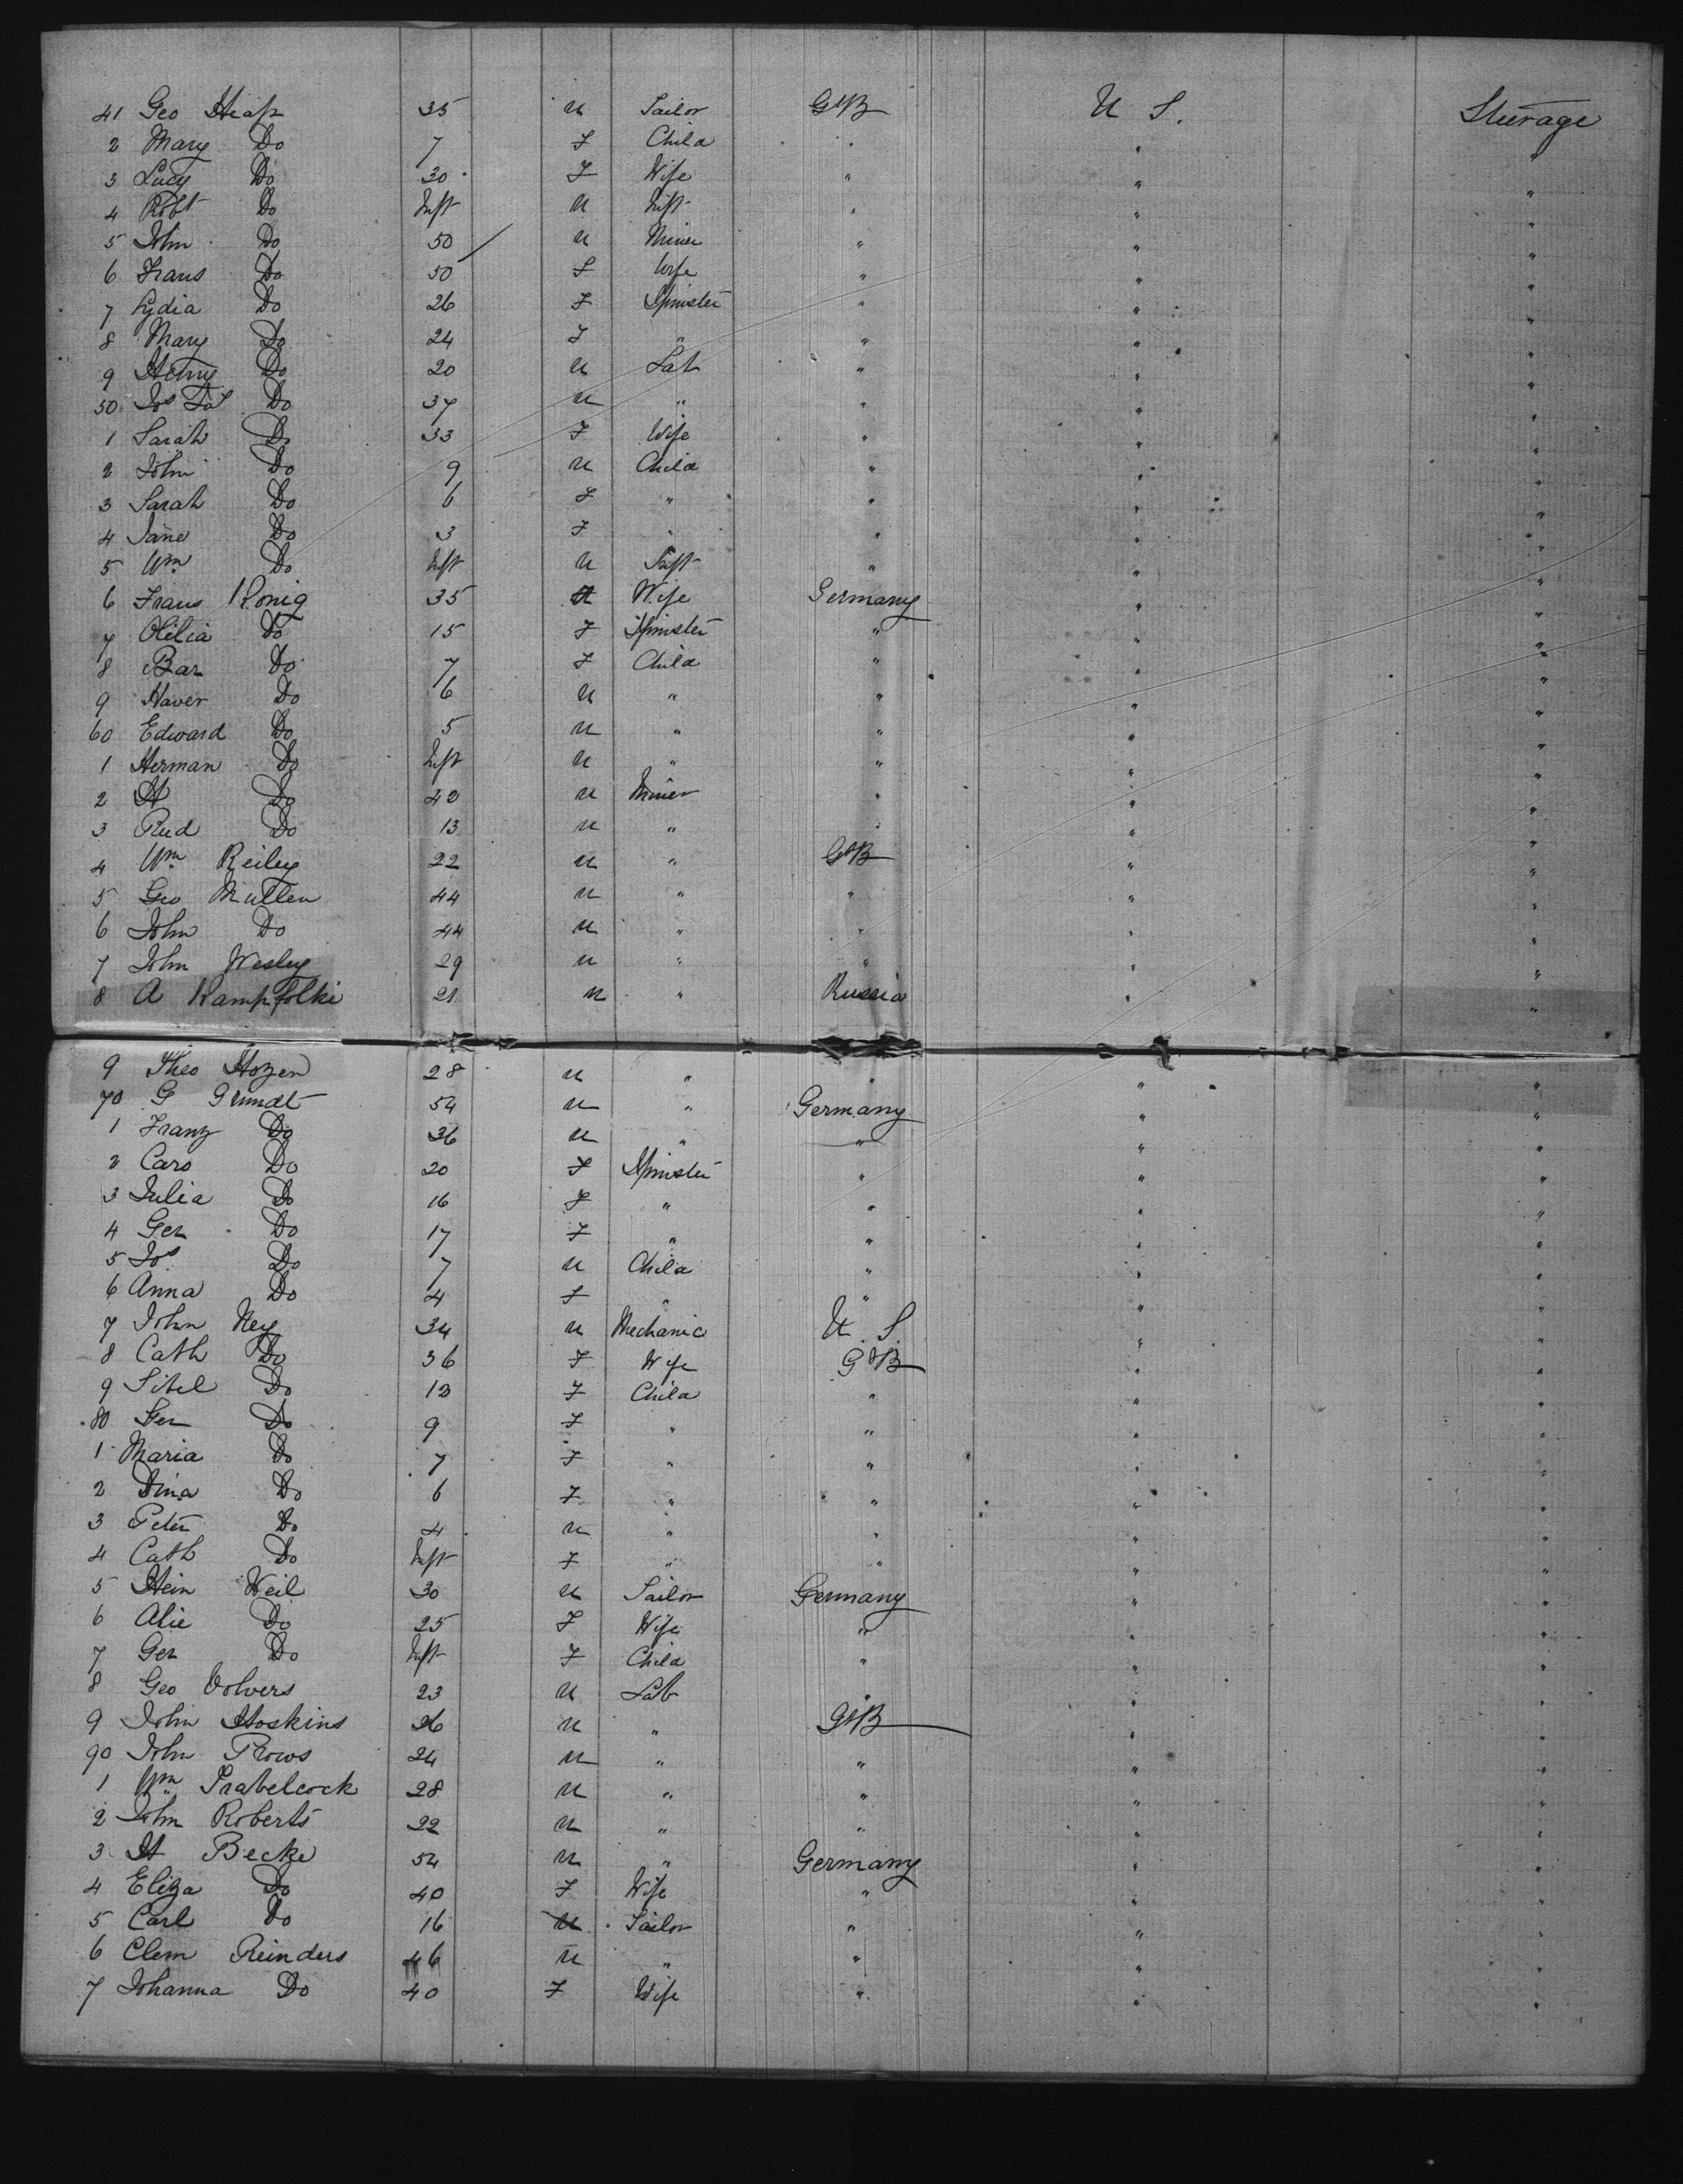 41 Geo Heap 35 M Tailor GtB U S. Steerage
2 Mary Do 7 F Child " " "
3 Lucy Do 30 F Wife " " "
4 Robt Do Inft M Inft " " "
5 John Do 50 M Miner " " "
6 Frans Do 50 F Wife " " "
7 Lydia Do 26 F Spinster " " "
8 Mary Do 24 F " " " "
9 Henry Do 20 M Lab " " "
50 Jos Do 37 M " " " "
1 Sarah Do 33 F Wife " " "
2 John Do 9 M Child " " "
3 Sarah Do 6 F " " " "
4 Jane Do 3 F " " " "
5 Wm Do Inft M Inft " " "
6 Frans Konig 35 Wife Germany " "
7 Otilia Do 15 F Spinster " " "
8 Bar Do 7 F Child " " "
9 Xaver Do 6 M " " " "
60 Edward Do 5 M " " " "
1 Herman Do Inft M " " " "
2 H Do 42 M Miner " " "
3 Rud Do 13 M " " " "
4 Wm Reiley 22 M " GtB " "
5 Geo Mullen 44 M " " " "
6 John Do 44 M " " " "
7 John Wesley 29 M " " " "
8 A Kampfolki 21 M " Russia " "
9 Theo Hozen 28 M " " " "
70 G Grundt 54 M " Germany " "
1 Franz Do 36 M " " " "
2 Caro Do 20 F Spinster " " "
3 Julia Do 16 F " " " "
4 Ger Do 17 F " " " "
5 Jos Do 7 M Child " " "
6 Anna Do 4 F " " " "
7 John Ney 34 M Mechanic U. S. " "
8 Cath Do 36 F Wife GtB " "
9 Sibel Do 12 F Child " " "
80 Ger Do 9 F " " " "
1 Maria Do 7 F " " " "
2 Dina Do 6 F " " " "
3 Peter Do 4 M " " " "
4 Cath Do Inft F " " " "
5 Hein Weil 30 M Tailor Germany " "
6 Alie Do 25 F Wife " " "
7 Ger Do Inft F Child " " "
8 Geo Volvers 23 M Lab " " "
9 John Hoskins 26 M " GtB " "
90 John Prows 24 M " " " "
1 Wm Trabelcock 28 M " " " "
2 John Roberts 22 M " " " "
3 H Becke 54 M " Germany " "
4 Eliza Do 40 F Wife " " "
5 Carl Do 16 M Tailor " " "
6 Clem Reinders 46 M " " " "
7 Johanna Do 40 F Wife " " "